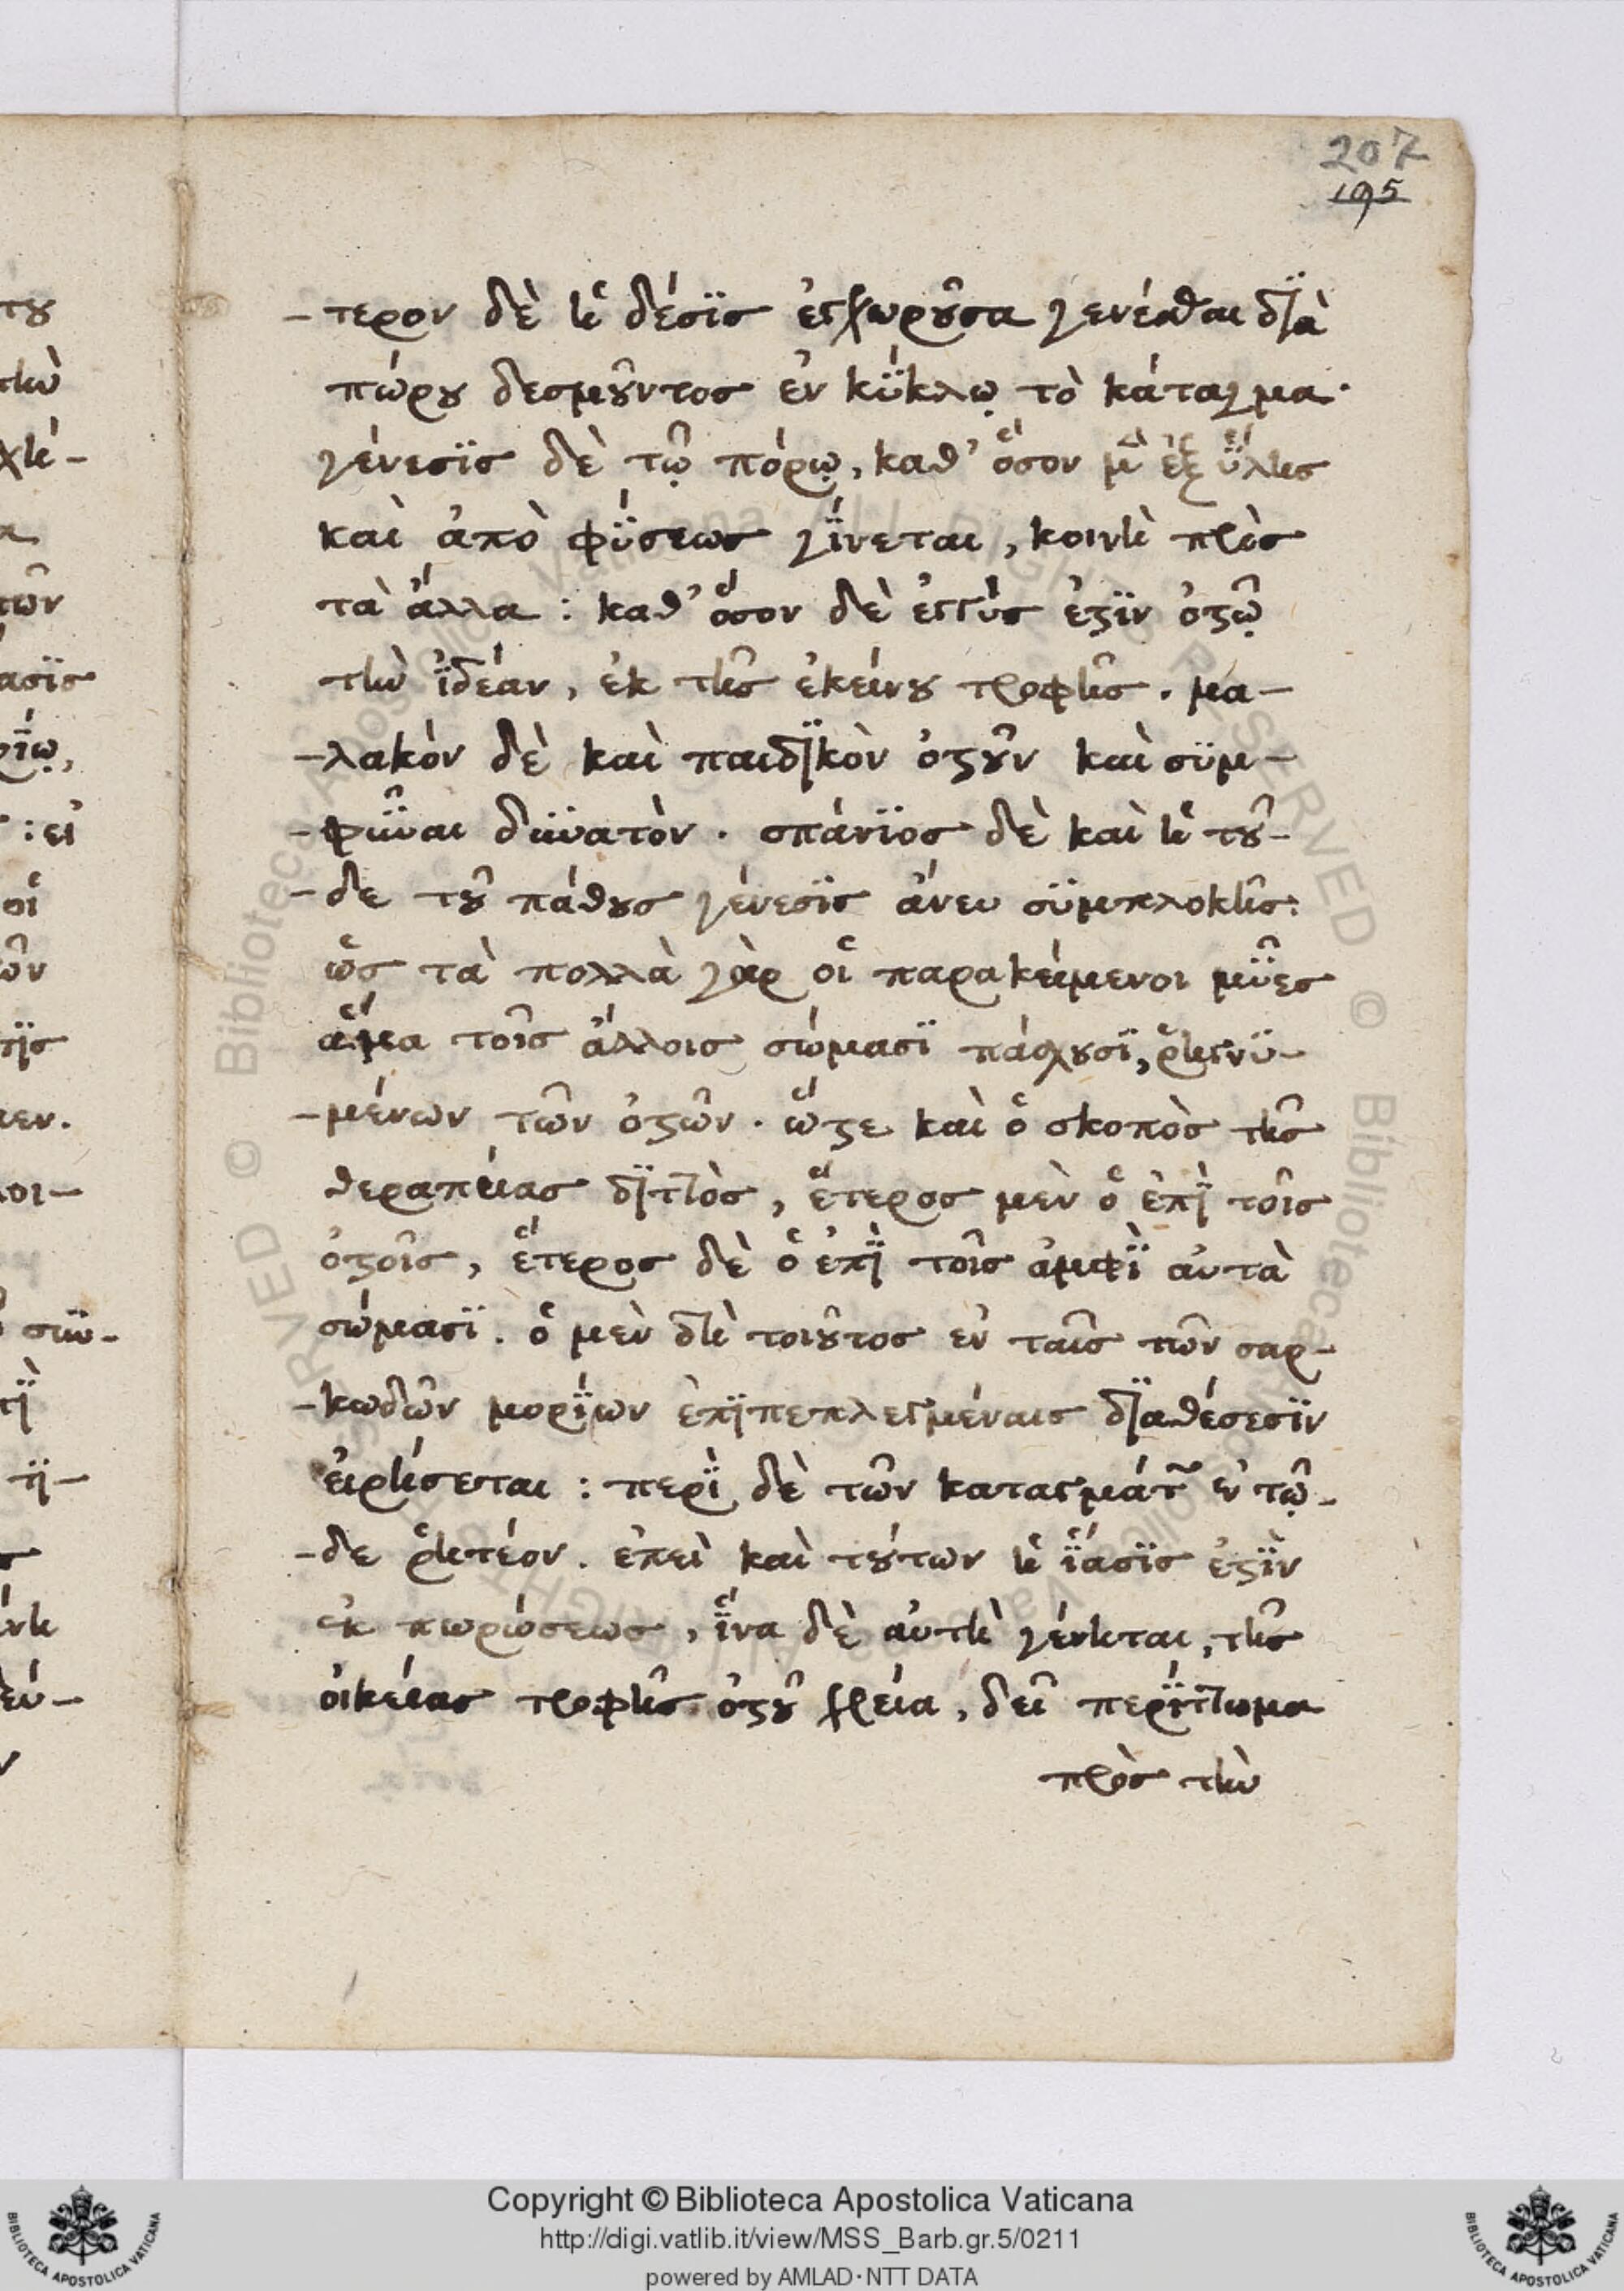 207
195
του
-τερον δὲ ἡ δέσϊσ ἐγχωροῦσα γενέσθαι δϊὰ
τὴν
πώρου δεσμοῦντοσ ἐν κΰκλῳ τὸ κάταγμα·
χή-
γένεσϊσ δὲ τῷ πόρῳ, καθ' ὅσον μὲν ἐξ ὕλησ
καὶ ἀπὸ φΰσεωσ γΐνεται, κοινὴ πρὸσ
τῶν
τὰ ἄλλα : καθ' ὅσον δὲ ἐγγὺσ ἐστϊν ὀστῷ
ασϊσ
τὴν ἰδέαν, ἐκ τῆσ ἐκείνου τροφῆσ. μα-
ρΐῳ,
-λακὸν δὲ καὶ παιδϊκὸν ὀστοῦν καὶ σϋμ-
: εἰ
-φῦναι δϋνατὸν. σπάνϊοσ δὲ καὶ ἡ τοῦ-
οἱ
-δε τοῦ πάθουσ γένεσϊσ ἄνευ σϋμπλοκῆσ:
ῶν
ὡσ τὰ πολλὰ γὰρ οἱ παρακείμενοι μῦεσ
σϊσ
ἅμα τοῖσ ἄλλοισ σώμασϊ πάσχουσϊ, ῥηγνϋ-
μεν.
-μένων τῶν ὀστῶν. ὥστε καὶ ὁ σκοπὸσ τῆσ
λοι-
θεραπείασ δϊττὸσ, ἕτεροσ μὲν ὁ ἐπῒ τοῖσ
ὀστοῖσ, ἕτεροσ δὲ ὁ ἐπῒ τοῖσ ἀμφῒ αὐτὰ
σϋν-
σώμασϊ. ὁ μὲν δὴ τοιοῦτοσ ἐν ταῖσ τῶν σαρ-
τῒ
-κωδῶν μορΐων ἐπϊπεπλεγμέναισ δϊαθέσεσϊν
τϊ-
εἰρήσεται : περῒ δὲ τῶν καταγμάτ~ ἐν τῷ-
-δε ῥητέον. ἐπεὶ καὶ τούτων ἡ ἴασϊσ ἐστῒν
ἐκ πωρώσεωσ, ἵνα δὲ αὐτὴ γένηται, τῆσ
οἰκείασ τροφῆσ ὀστοῦ χρεία, δεῖ περΐττωμα
πρὸσ τὴν
Copyright © Biblioteca Apostolica Vaticana
http://digi.vatlib.it/view/MSS_Barb.gr.5/0211
powered by AMLAD·NTT DATA